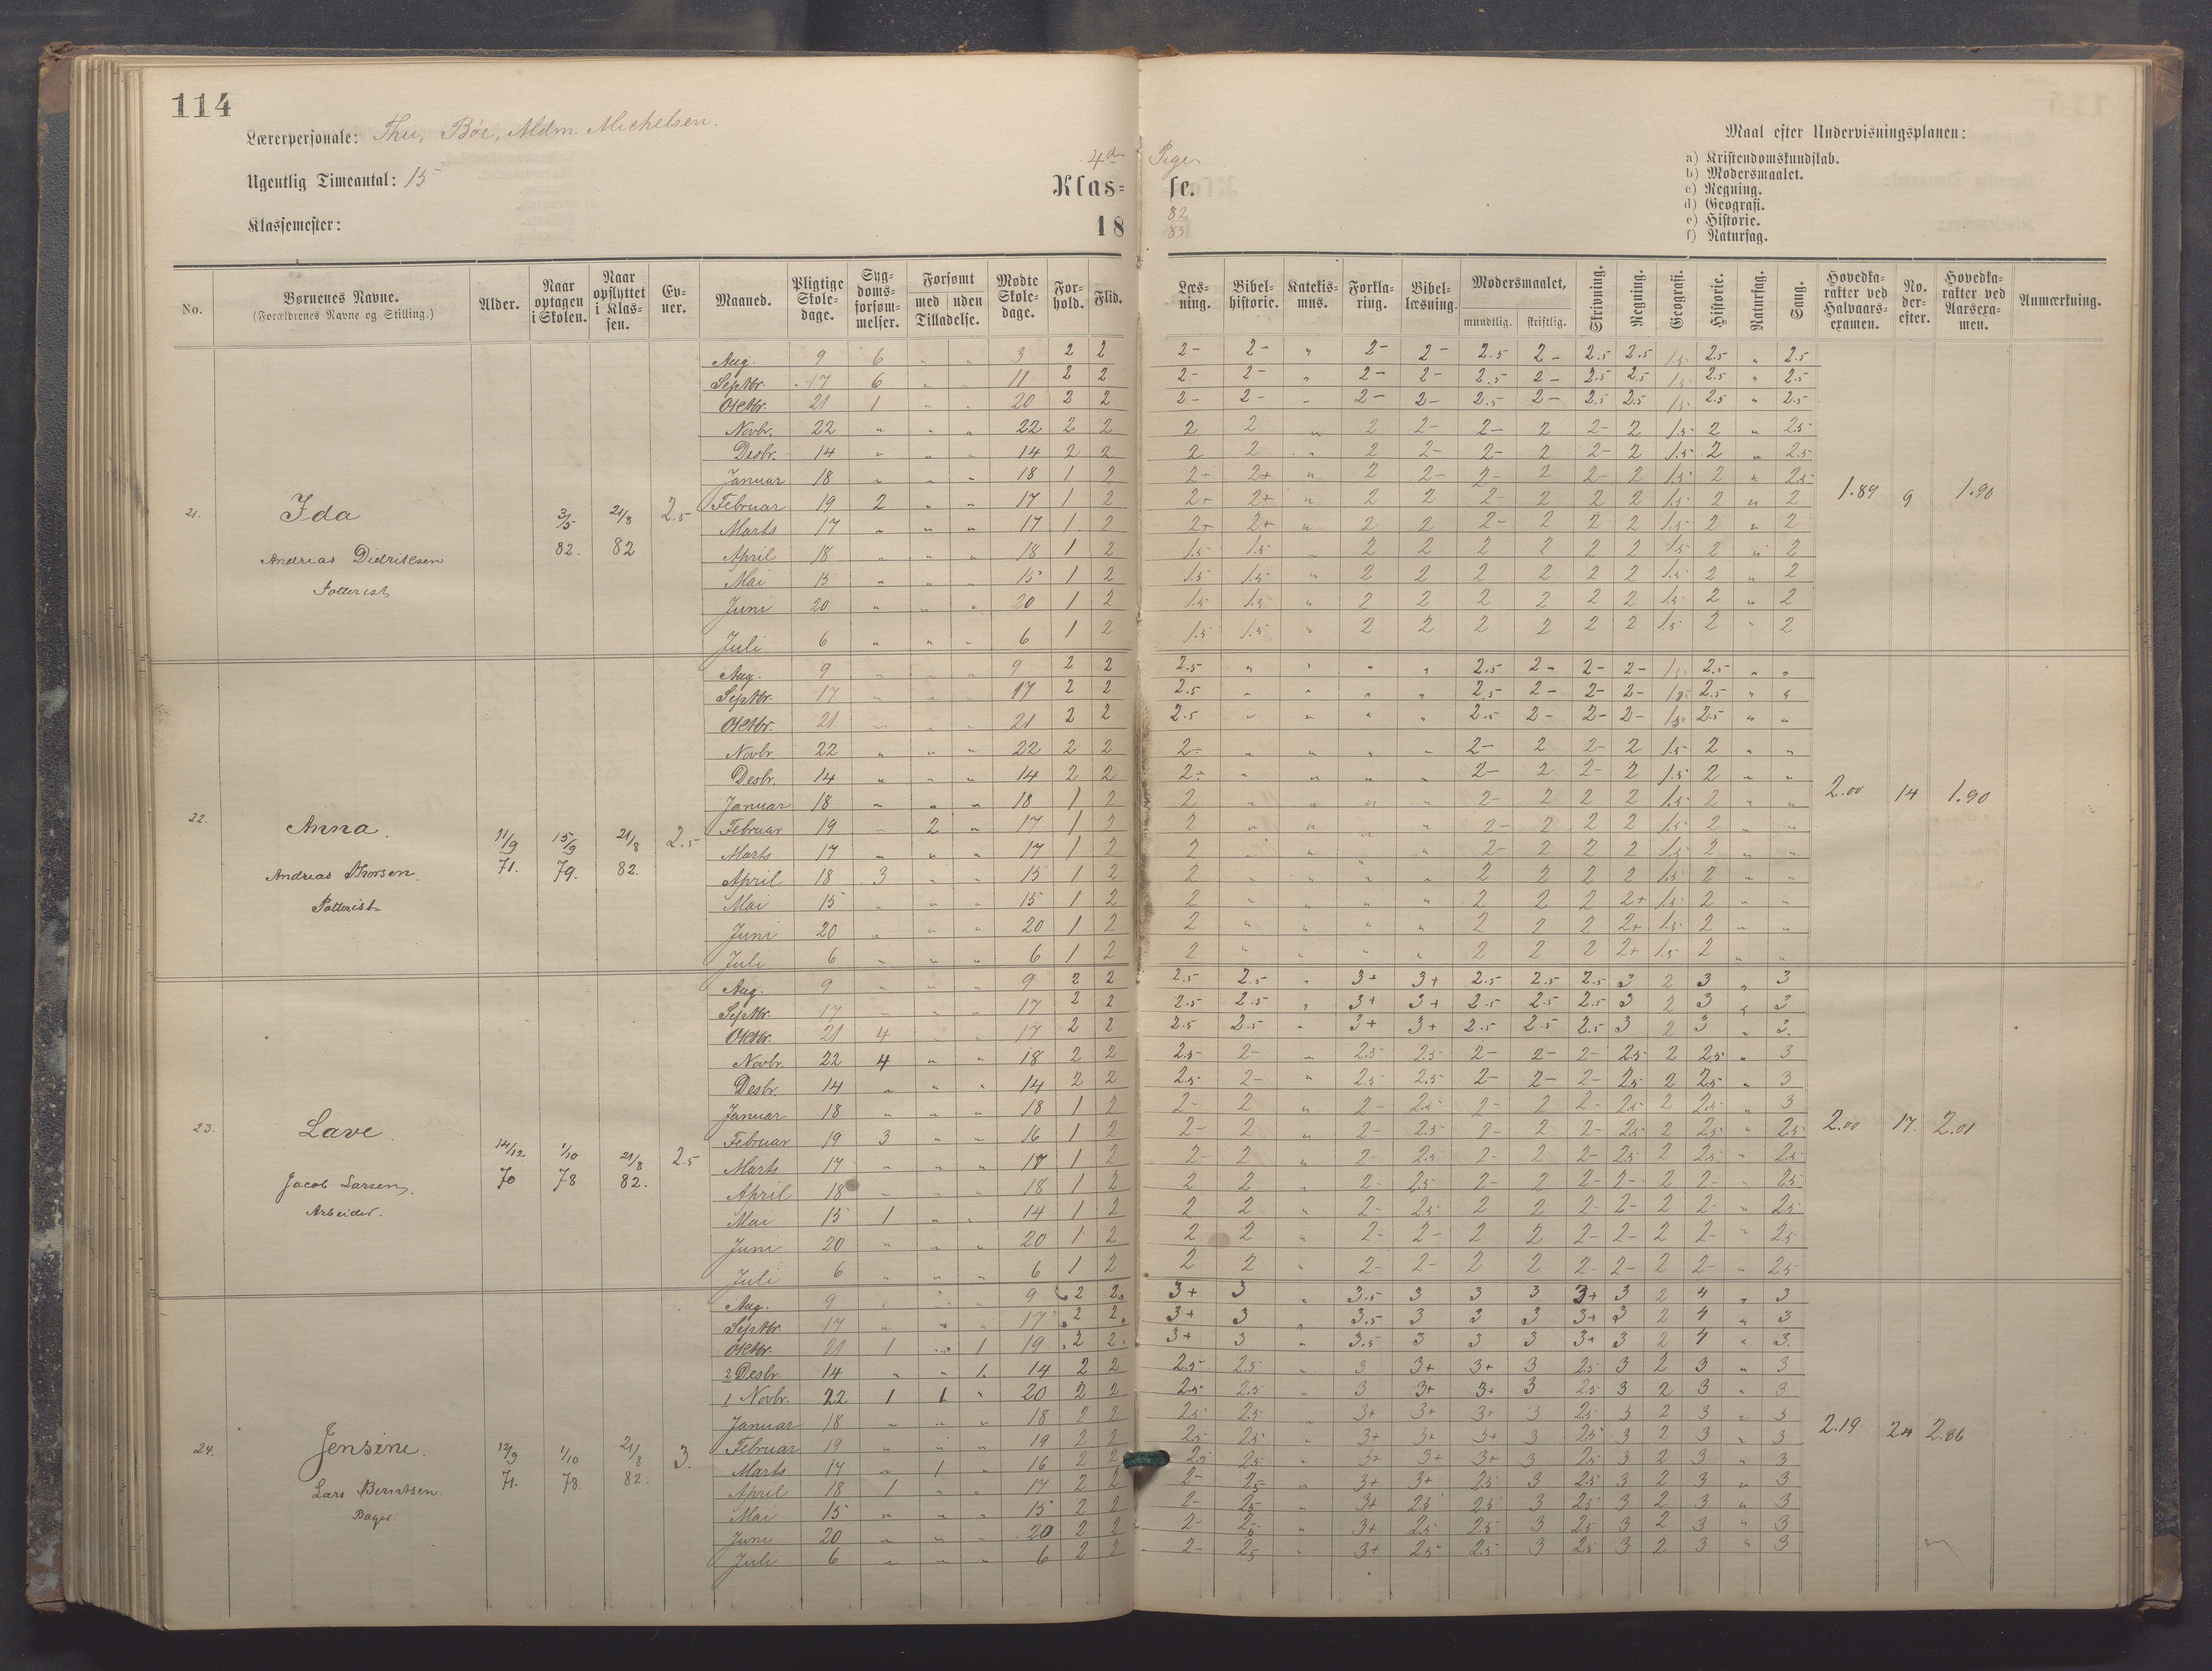 114
Lærerpersonale: Thu, Böe, Mdm. Michelsen.
Ugentlig Timeantal: 15
Klassemester:
4de Pige
Klas= se.
18 82 83
Maal efter Undervisningsplanen:
a) Kristendomskundskab.
b) Modersmaalet.
c) Regning.
d) Geografi.
e) Historie.
f) Naturfag.
No. | Børnenes Navne. (Forældrenes Navne og Stilling.) | Alder. | Naar optagen i Skolen. | Naar opflyttet i Klassen. | Evner. | Maaned. | Pligtige Skoledage. | Sygdomsforsømmelser. | Forsømt med Tilladelse. | uden Tilladelse. | Mødte Skoledage. | Forhold. | Flid. | Læsning. | Bibelhistorie. | Katekismus. | Forklaring. | Bibellæsning. | Modersmaalet, mundtlig. | skriftlig. | Skrivning. | Regning. | Geografi. | Historie. | Naturfag. | Sang. | Hovedkarakter ved Halvaarsexamen. | No. derefter. | Hovedkarakter ved Aarsexamen. | Anmærkning.
21. Ida
Andreas Didriksen
3/5 82. 21/8 82 2.5
Aug. 9 6 " " 3 2 2 2- 2- " 2- 2- 2.5 2- 2.5 2.5 1.5 2.5 " 2.5
Septbr. 17 6 " " 11 2 2 2- 2- " 2- 2- 2.5 2- 2.5 2.5 1.5 2.5 " 2.5
Oktbr. 21 1 " " 20 2 2 2- 2- " 2- 2- 2.5 2- 2.5 2.5 1.5 2.5 " 2.5
Novbr. 22 " " " 22 2 2 2 2 " 2 2- 2- 2 2- 2 1.5 2 " 2.5
Desbr. 14 " " " 14 2 2 2 2 " 2 2- 2- 2 2- 2 1.5 2 " 2.5
Januar 18 " " " 18 1 2 2+ 2+ " 2 2- 2- 2 2- 2 1.5 2 " 2.5
Februar 19 2 " " 17 1 2 2+ 2+ " 2 2 2- 2 2 2 1.5 2 " 2
Marts 17 " " " 17 1 2 2+ 2+ " 2 2 2- 2 2 2 1.5 2 " 2
April 18 " " " 18 1 2 1.5 1.5 " 2 2 2 2 2 2 1.5 2 " 2
Mai 15 " " " 15 1 2 1.5 1.5 " 2 2 2 2 2 2 1.5 2 " 2
Juni 20 " " " 20 1 2 1.5 1.5 " 2 2 2 2 2 2 1.5 2 " 2
Juli 6 " " " 6 1 2 1.5 1.5 " 2 2 2 2 2 2 1.5 2 " 2
1.89 9 1.90
22. Anna.
Andreas Thorsen.
Potterist
11/9 71. 15/9 79. 21/8 82. 2.5
Aug. 9 " " " 9 2 2 2.5 " " " " 2.5 2- 2- 2- 1.5 2.5 " "
Septbr. 17 " " " 17 2 2 2.5 " " " " 2.5 2- 2- 2- 1.5 2.5 " "
Oktbr. 21 " " " 21 2 2 2.5 " " " " 2.5 2- 2- 2- 1.5 2.5 " "
Novbr 22 " " " 22 2 2 2- " " " " 2- 2 2- 2 1.5 2 " "
Desbr. 14 " " " 14 2 2 2- " " " " 2- 2 2- 2 1.5 2 " "
Januar 18 " " " 18 1 2 2 " " " " 2- 2 2 2 1.5 2 " "
Februar 19 " 2 " 17 1 2 2 " " " " 2- 2 2 2 1.5 2 " "
Marts 17 " " " 17 1 2 2 " " " " 2- 2 2 2 1.5 2 " "
April 18 3 " " 15 1 2 2 " " " " 2 2 2 2 1.5 2 " "
Mai 15 " " " 15 1 2 2 " " " " 2 2 2 2+ 1.5 2 " "
Juni 20 " " " 20 1 2 2 " " " " 2 2 2 2+ 1.5 2 " "
Juli 6 " " " 6 1 2 2 " " " " 2 2 2 2+ 1.5 2 " "
2.00 14 1.90
23. Lave
Jacob Larsen.
Arbeider.
14/12 70 1/10 78 21/8 82. 2.5
Aug. 9 " " " 9 2 2 2.5 2.5 " 3+ 3+ 2.5 2.5 2.5 3 2 3 " 3
Septbr. 17 " " " 17 2 2 2.5 2.5 " 3+ 3+ 2.5 2.5 2.5 3 2 3 " 3
Oktbr. 21 4 " " 17 2 2 2.5 2.5 " 3+ 3+ 2.5 2.5 2.5 3 2 3 " 3.
Novbr. 22 4 " " 18 2 2 2.5 2- " 2.5 2.5 2- 2- 2- 2.5 2 2.5 " 3
Desbr. 14 " " " 14 2 2 2.5 2- " 2.5 2.5 2- 2- 2- 2.5 2 2.5 " 3
Januar 18 " " " 18 1 2 2- 2 " 2- 2.5 2- 2 2- 2.5 2 2.5 " 3
Februar 19 3 " " 16 1 2 2- 2 " 2- 2.5 2- 2 2- 2.5 2 2.5 " 2.5
Marts 17 " " " 17 1 2 2- 2 " 2- 2.5 2- 2 2- 2.5 2 2.5 " 2.5
April 18 " " " 18 1 2 2 2 " 2- 2.5 2- 2 2- 2- 2 2- " 2.5
Mai 15 1 " " 14 1 2 2 2 " 2- 2.5 2 2 2- 2- 2 2- " 2.5
Juni 20 " " " 20 1 2 2 2 " 2- 2- 2 2 2- 2- 2 2- " 2.5
Juli 6 " " " 6 1 2 2 2 " 2- 2- 2 2 2- 2- 2 2- " 2.5
2.00 17. 2.01
24. Jensine.
Lars Berntsen.
Bager.
71. 1/10 78. 21/8 82. 3.
Aug. 9 " " " 9 2 2 3+ 3 " 3.5 3 3 3 3+ 3 2 4 " 3
Septbr 17 " " " 17 2 2 3+ 3 " 3.5 3 3 3 3+ 3 2 4 " 3
Oktbr. 21 1 " 1 19 2 2 3+ 3 " 3.5 3 3 3 3+ 3 2 4 " 3.
2 Desbr 14 " " 1. 14 2 2 2.5 2.5 " 3 3+ 3+ 3 2.5 3 2 3 " 3
1 Novbr. 22 1 1 " 20 2 2 2.5 2.5 " 3 3+ 3+ 3 2.5 3 2 3 " 3
Januar 18 " " " 18 2 2 2.5 2.5 " 3+ 3+ 3+ 3 2.5 3 2 3 " 3
Februar 19 " " " 19 2 2 2.5 2.5 " 3+ 3+ 3+ 3 2.5 3 2 3 " 3
Marts 17 " 1 " 16 2 2 2.5 2.5 " 3+ 3+ 3+ 3 2.5 3 2 3 " 3
April 18 1 " " 17 2 2 2- 2.5 " 3+ 3+ 2.5 3 2.5 3 2 3 " 3
Mai 15 " " " 15 2 2 2- 2.5 " 3+ 2.5 2.5 3 2.5 3 2 3 " 3
Juni 20 " " " 20 2 2 2- 2.5 " 3+ 2.5 2.5 3 2.5 3 2 3 " 3
Juli 6 " " " 6 2 2 2- 2.5 " 3+ 2.5 2.5 3 2.5 3 2 3 " 3
2.19 24 2.86